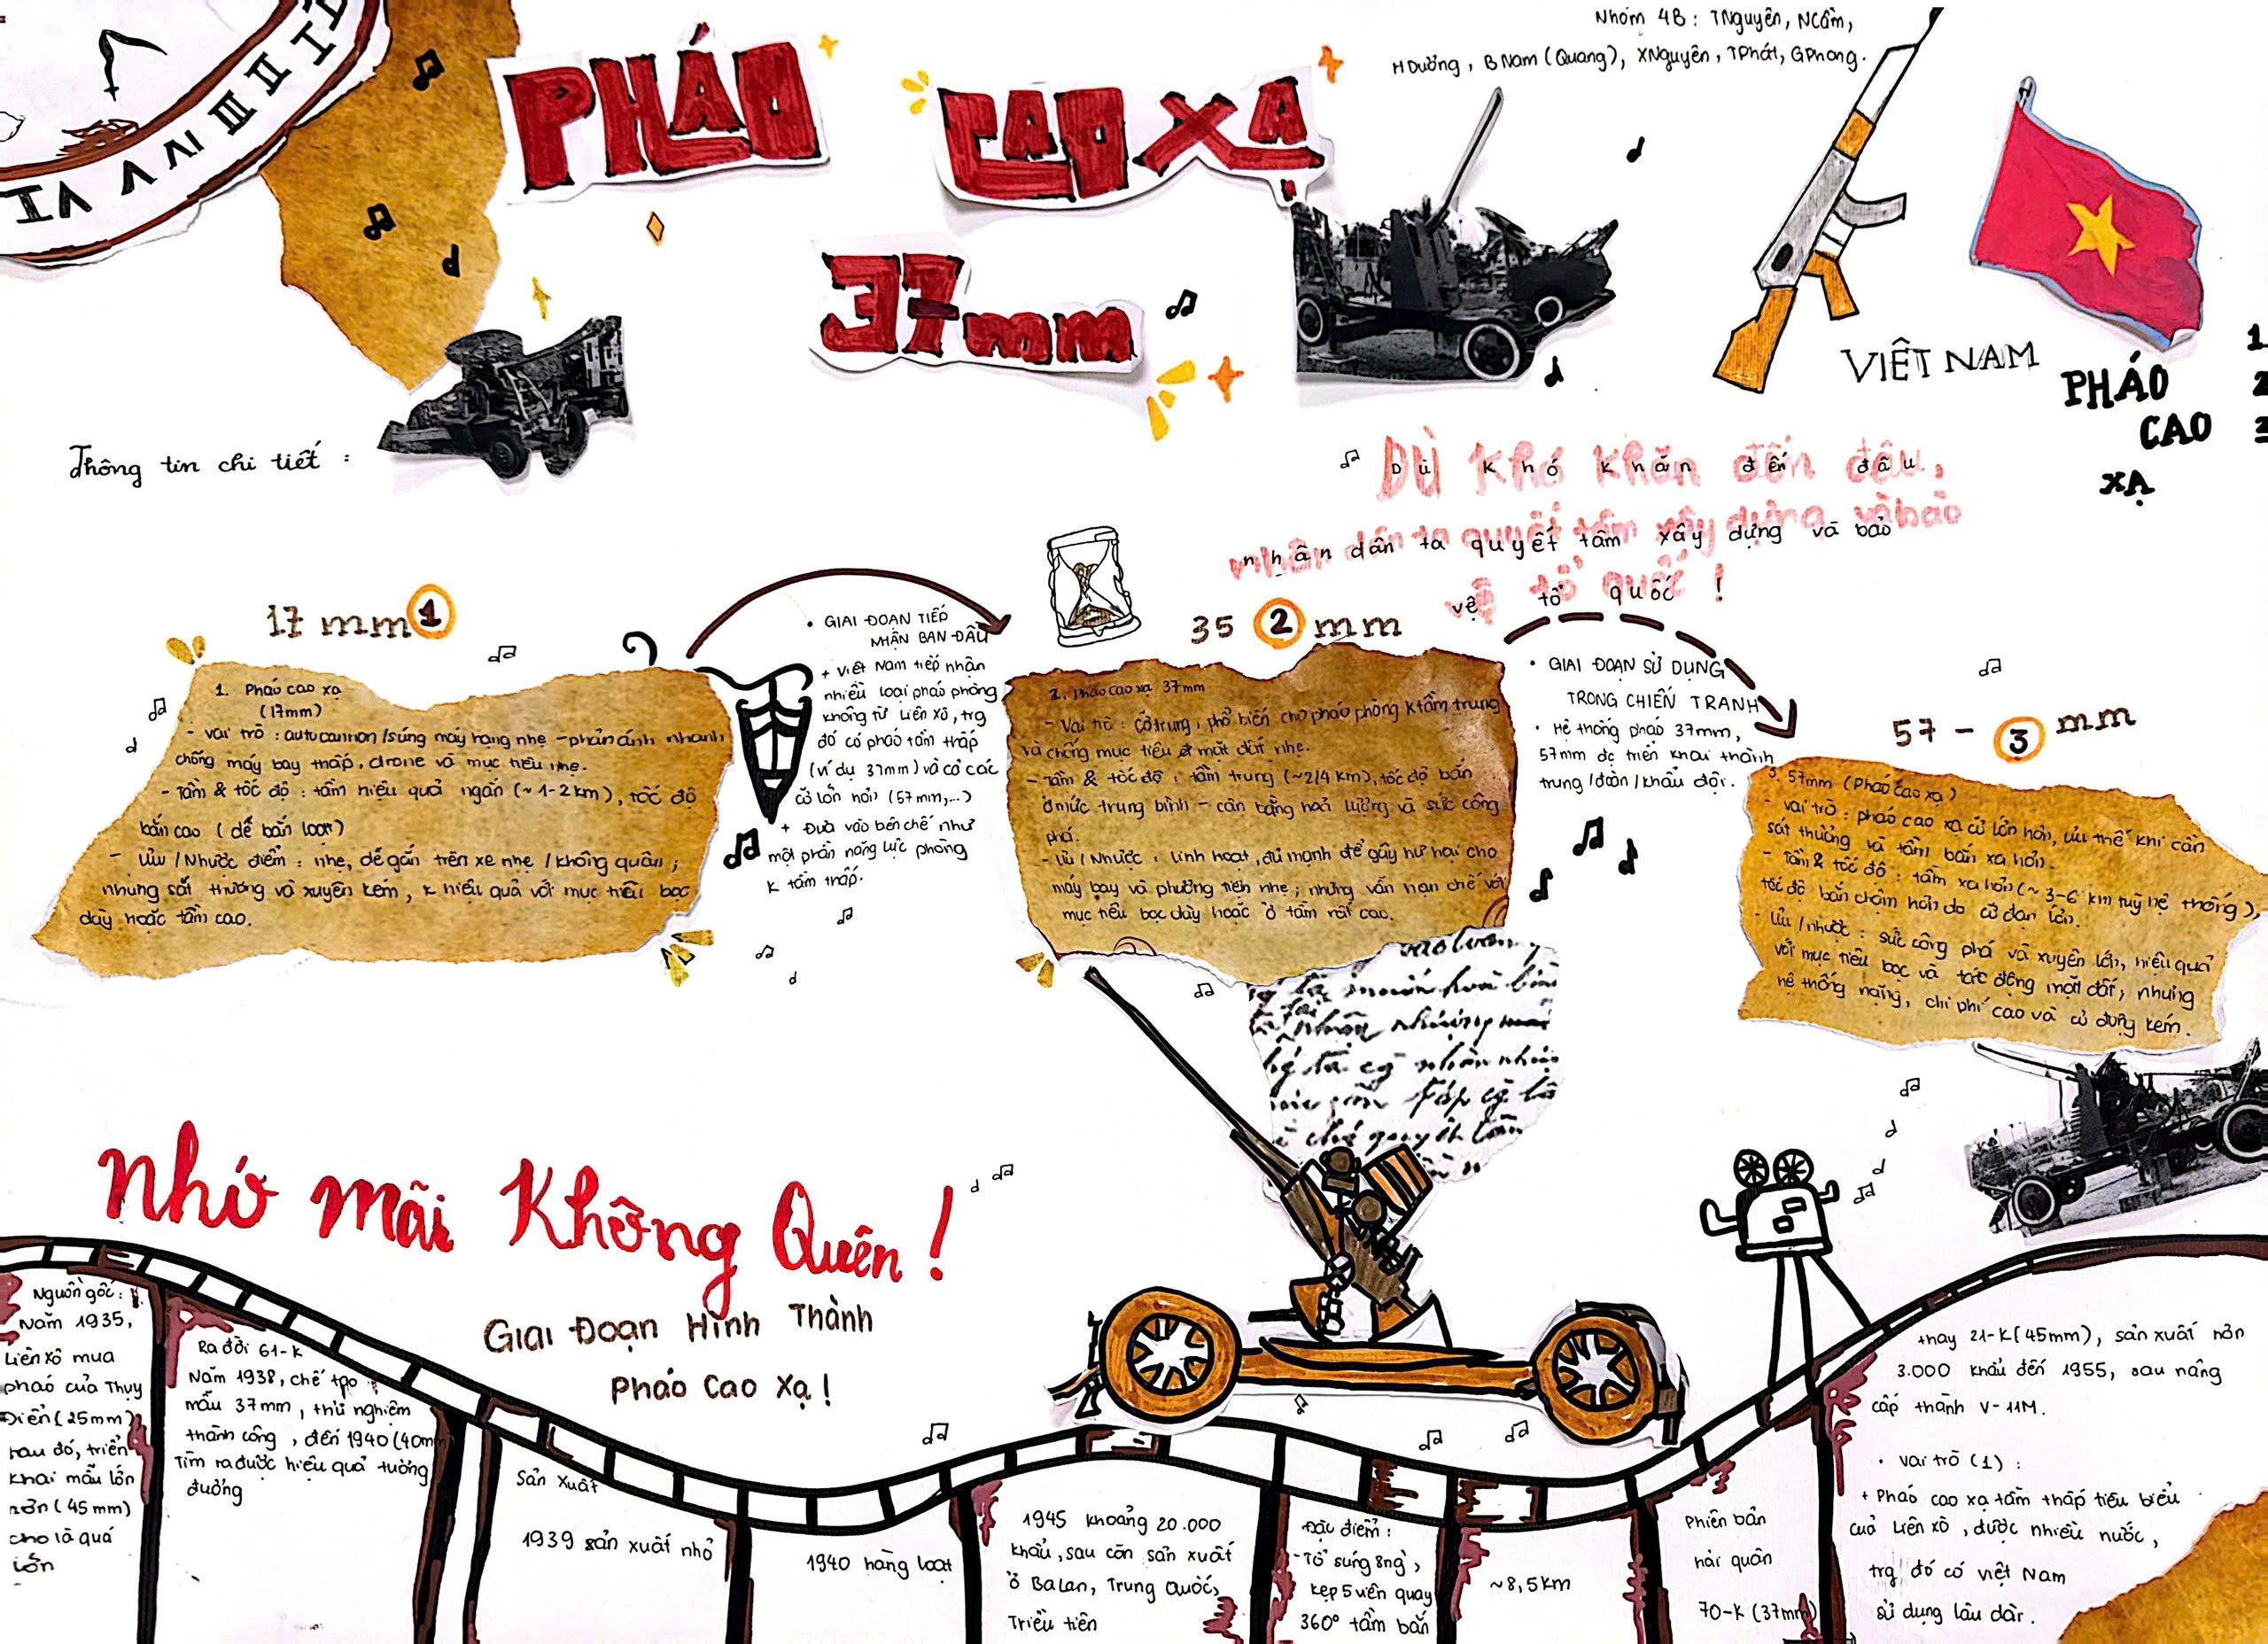 Nhóm 4B : TNguyên, NCầm,
HDường, BNam (Quang), XNguyên, TPhát, GPhong.
PHÁO
CAO XẠ
37mm
I II III IV V VI
VIỆT NAM
PHÁO
CAO
XẠ
1
2
3
Thông tin chi tiết :
Dù khó khăn đến đâu,
nhân dân ta quyết tâm xây dựng và bảo
vệ tổ quốc !
17 mm 1
1. Pháo cao xạ
(17mm)
- vai trò : autocannon/súng máy hạng nhẹ - phản ánh nhanh
chống máy bay thấp, drone và mục tiêu nhẹ.
- Tầm & tốc độ : tầm hiệu quả ngắn (~1-2km), tốc độ
bắn cao ( dễ bắn loạt)
- ưu/Nhược điểm : nhẹ, dễ gắn trên xe nhẹ / không quân ;
nhưng sát thương và xuyên kém, k hiệu quả với mục tiêu bọc
dày hoặc tầm cao.
• GIAI ĐOẠN TIẾP
NHẬN BAN ĐẦU
+ Việt Nam tiếp nhận
nhiều loại pháo phòng
không từ Liên Xô, trg
đó có pháo tầm thấp
(ví dụ 37mm) và có các
cỡ lớn hơn (57mm,...)
+ Đưa vào bên chế như
một phần năng lực phòng
k tầm thấp.
35 2 mm
2. Pháo cao xạ 37mm
- Vai trò : cỡ trung, phổ biến cho pháo phòng k tầm trung
và chống mục tiêu mặt đất nhẹ.
- Tầm & tốc độ : tầm trung (~2/4 km), tốc độ bắn
ở mức trung bình - cân bằng hoả lượng và sức công
phá.
- ưu / Nhược : linh hoạt, đủ mạnh để gây hư hại cho
máy bay và phương tiện nhẹ ; nhưng vẫn hạn chế với
mục tiêu bọc dày hoặc ở tầm rất cao.
• GIAI ĐOẠN SỬ DỤNG
TRONG CHIẾN TRANH
• Hệ thống pháo 37mm,
57mm dc triển khai thành
trung /đoàn /khẩu đội.
57 - 3 mm
3. 57mm (Pháo cao xạ)
- vai trò : pháo cao xạ cỡ lớn hơn, ưu thế khi cần
sát thương và tầm bắn xa hơn.
- Tầm & tốc độ : tầm xa hơn (~ 3-6 km tuỳ hệ thống),
tốc độ bắn chậm hơn do cỡ đạn lớn.
- ưu /nhược : sức công phá và xuyên lớn, hiệu quả
với mục tiêu bọc và tác động mặt đất, nhưng
hệ thống nặng, chi phí cao và cơ động kém.
Nhớ Mãi Không Quên !
GIAI ĐOẠN HÌNH THÀNH
PHÁO CAO XẠ !
Nguồn gốc :
Năm 1935,
Liên Xô mua
pháo của Thụy
Điển (25mm)
sau đó, triển
khai mẫu lớn
hơn (45 mm)
cho là quá
lớn
Ra đời 61-K
Năm 1938, chế tạo
mẫu 37mm, thử nghiệm
thành công , đến 1940 (40mm)
Tìm ra được hiệu quả tương
đương
Sản xuất
1939 sản xuất nhỏ
1940 hàng loạt
1945 khoảng 20.000
khẩu, sau còn sản xuất
ở Ba Lan, Trung Quốc,
Triều tiên
Đặc điểm :
- Tổ súng 8ng',
kẹp 5 viên quay
360° tầm bắn
~8,5km
Phiên bản
hải quân
70-K (37mm)
thay 21-K (45mm), sản xuất hơn
3.000 khẩu đến 1955, sau nâng
cấp thành V-11M.
• Vai trò (1) :
+ Pháo cao xạ tầm thấp tiêu biểu
của Liên Xô , được nhiều nước,
trg đó có Việt Nam
sử dụng lâu dài.